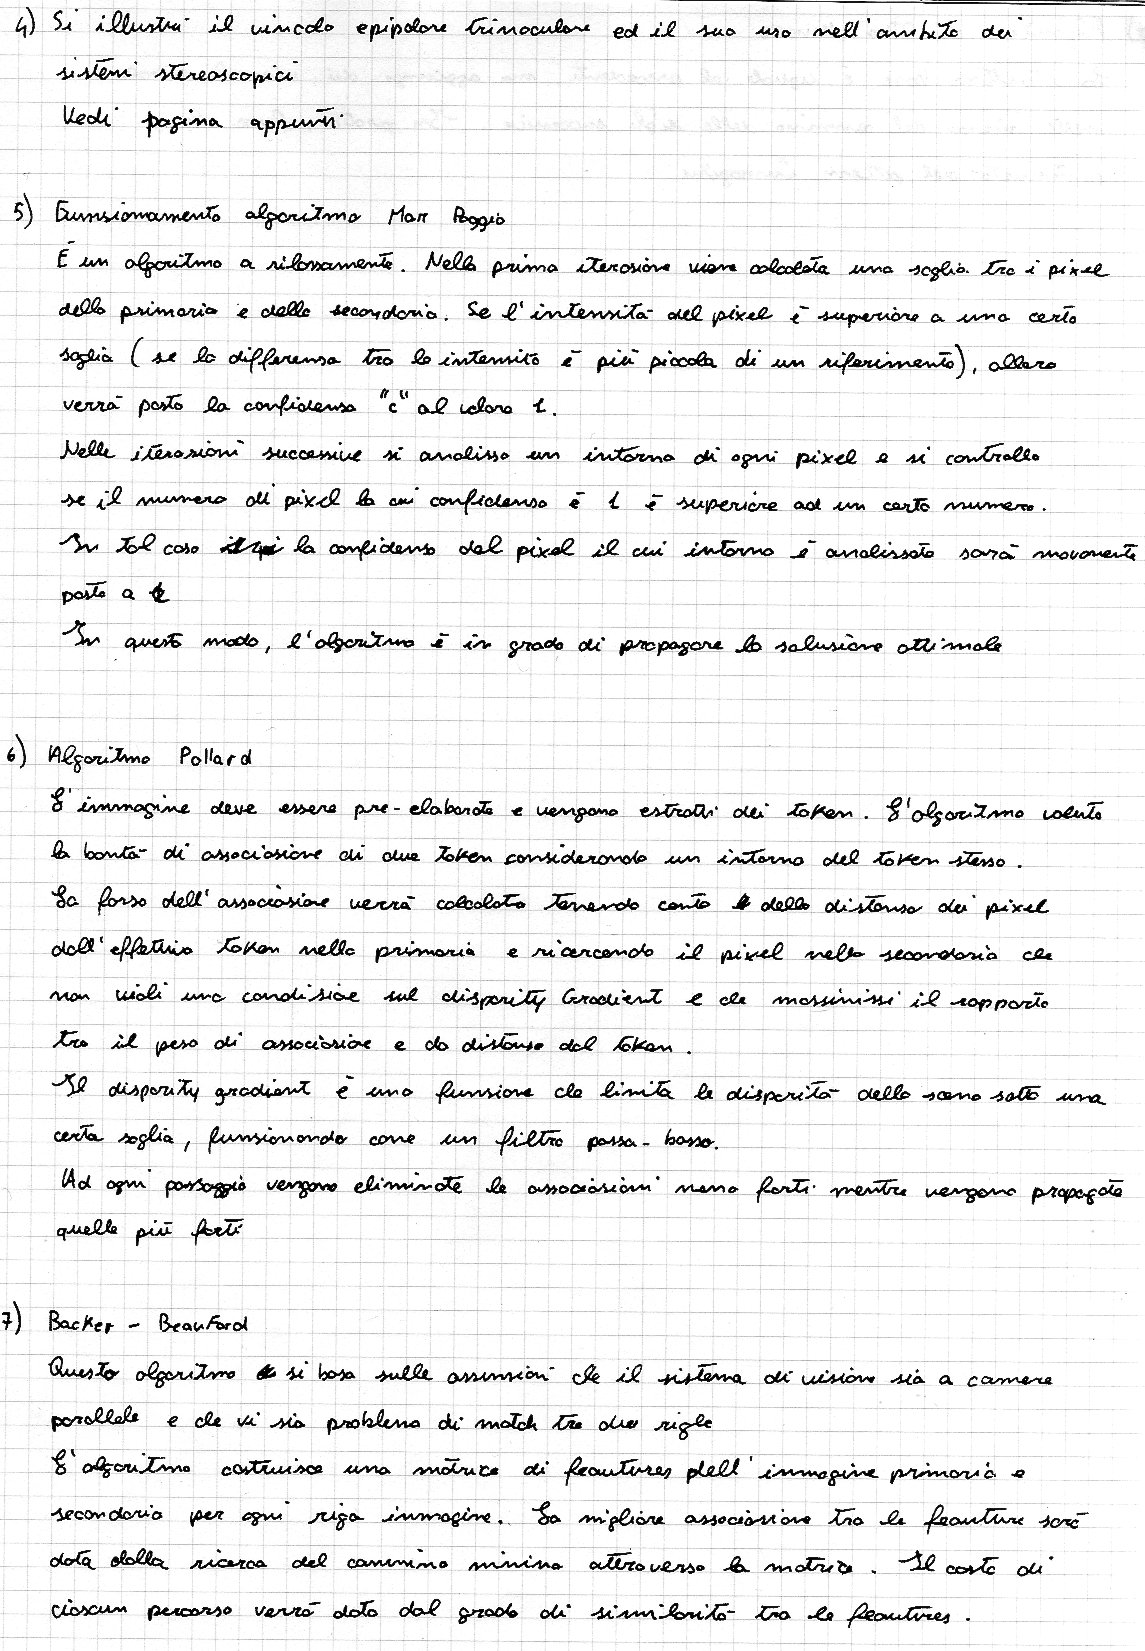 4) Si illustri il vincolo epipolare trinoculare ed il suo uso nell'ambito dei
sistemi stereoscopici
Vedi pagina appunti
5) Funzionamento algoritmo Marr Poggio
È un algoritmo a rilassamento. Nella prima iterazione viene calcolata una soglia tra i pixel
della primaria e della secondaria. Se l'intensità del pixel è superiore a una certa
soglia (se la differenza tra le intensità è più piccola di un riferimento), allora
verrà posto la confidenza "c" al valore 1.
Nelle iterazioni successive si analizza un intorno di ogni pixel e si controlla
se il numero di pixel la cui confidenza è 1 è superiore ad un certo numero.
In tal caso la confidenza del pixel il cui intorno è analizzato sarà novamente
posta a 1
In questo modo, l'algoritmo è in grado di propagare la soluzione ottimale
6) Algoritmo Pollard
L'immagine deve essere pre-elaborata e vengono estratti dei token. L'algoritmo valuta
la bontà di associazione di due token considerando un intorno del token stesso.
La forza dell'associazione verrà calcolata tenendo conto della distanza dei pixel
dall'effettivo token nella primaria e ricercando il pixel nella secondaria che
non violi una condizione sul disparity Gradient e che massimizzi il rapporto
tra il peso di associazione e la distanza dal token.
Il disparity gradient è una funzione che limita le disparità della scena sotto una
certa soglia, funzionando come un filtro passa-basso.
Ad ogni passaggio vengono eliminate le associazioni meno forti mentre vengono propagate
quelle più forti
7) Backer - Beauford
Questo algoritmo si basa sulle assunzioni che il sistema di visione sia a camere
parallele e che vi sia problema di match tra due righe
L'algoritmo costruisce una matrice di feautures dell'immagine primaria e
secondaria per ogni riga immagine. La migliore associazione tra le feauture sarà
data dalla ricerca del cammino minimo attraverso la matrice. Il costo di
ciascun percorso verrà dato dal grado di similarità tra le feautures.